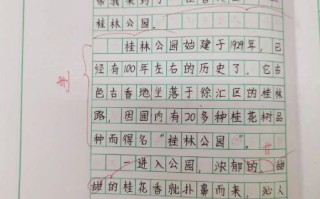 带我来到了
桂林公园。
桂林公园始建于1929年，已
经有100年左右的历史了。它古
色古香地坐落于徐汇区的桂林
路，因园内有20多种桂花树品
种而得名“桂林公园”。
一进入公园，浓郁的、甜
甜的桂花香就扑鼻而来，沁人